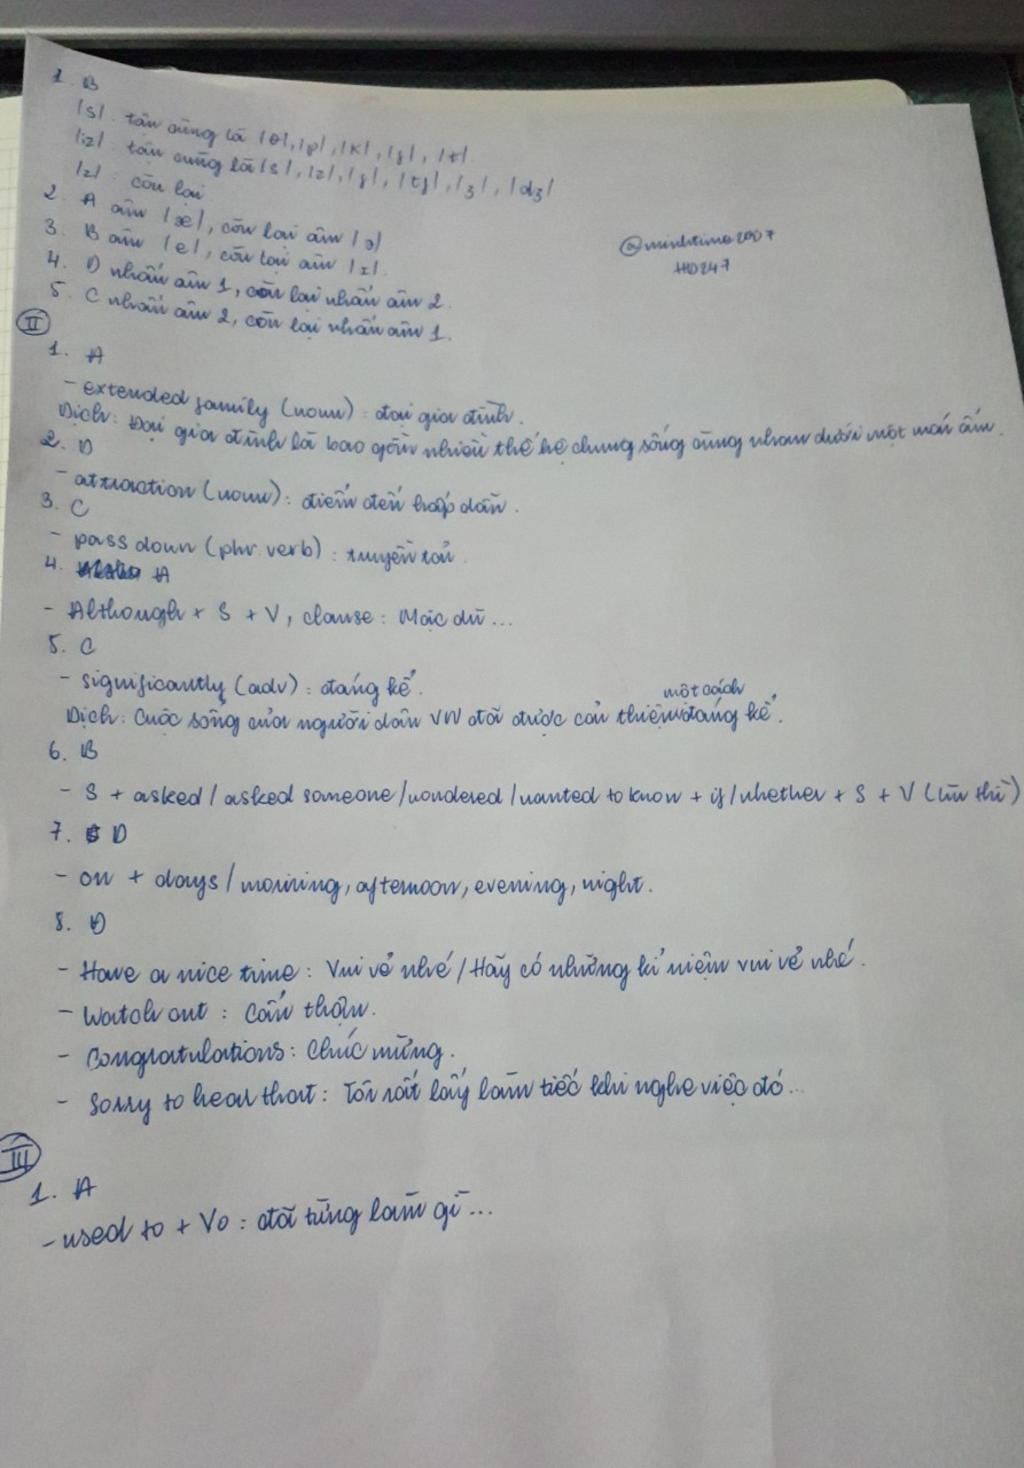 1. B
|s|: tận cùng là |θ|, |p|, |k|, |f|, |t|.
|iz|: tận cùng là |s|, |z|, |ʃ|, |tʃ|, |ʒ|, |dʒ|
|z|: còn lại
2. A âm |æ|, còn lại âm |ə|
3. B âm |e|, còn lại âm |ɪ|.
4. D nhấn âm 1, còn lại nhấn âm 2.
5. C nhấn âm 2, còn lại nhấn âm 1.
@minhtime2007
HD247
II
1. A
- extended family (noun): đại gia đình.
Dịch: Đại gia đình là bao gồm nhiều thế hệ chung sống cùng nhau dưới một mái ấm.
2. D
- attraction (noun): điểm đến hấp dẫn.
3. C
- pass down (phr. verb): truyền lại.
4. A
- Although + S + V, clause: Mặc dù...
5. C
- significantly (adv): đáng kể.
một cách
Dịch: Cuộc sống của người dân VN đã được cải thiện đáng kể.
6. B
- S + asked / asked someone / wondered / wanted to know + if / whether + S + V (lùi thì)
7. D
- on + days / morining, afternoon, evening, night.
8. D
- Have a nice time: Vui vẻ nhé / Hãy có những kỉ niệm vui vẻ nhé.
- Watch out: Cẩn thận.
- Congratulations: Chúc mừng.
- Sorry to hear that: Tôi rất lấy làm tiếc khi nghe việc đó...
III
1. A
- used to + Vo: đã từng làm gì...